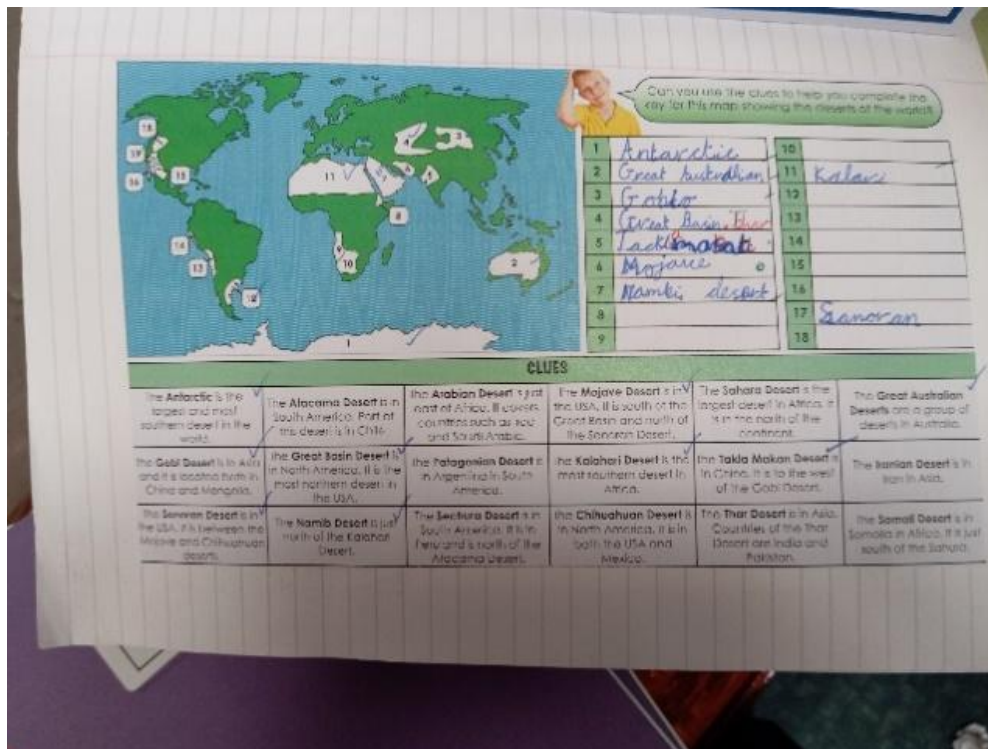 Can you use the clues to help you complete the
key for this map showing the deserts of the world?
18
17
16
15
14
13
12
11
10
9
8
3
2
1
1 Antarctic
2 Great Australian
3
4 Great Basin
5
6 Mojave
7 desert
8
9
10
11 Kalari
12
13
14
15
16
17 Sanoran
18
CLUES
The Antarctic is the
largest and most
southern desert in the
world.
The Atacama Desert is in
South America. Part of
this desert is in Chile.
The Arabian Desert is just
east of Africa. It covers
countries such as
and Saudi Arabia.
The Mojave Desert is in
the USA. It is south of the
Great Basin and north of
the Sonoran Desert.
The Sahara Desert is the
largest desert in Africa. It
is in the north of the
continent.
The Great Australian
Deserts are a group of
deserts in Australia.
The Gobi Desert is in Asia
and it is located both in
China and Mongolia.
The Great Basin Desert is
in North America. It is the
most northern desert in
the USA.
The Patagonian Desert is
in Argentina in South
America.
The Kalahari Desert is the
most southern desert in
Africa.
The Takla Makan Desert is
in China. It is to the west
of the Gobi Desert.
The Iranian Desert is in
Iran in Asia.
The Sonoran Desert is in
the USA. It is between the
Mojave and Chihuahuan
deserts.
The Namib Desert is just
north of the Kalahari
Desert.
The Sechura Desert is in
South America. It is in
Peru and is north of the
Atacama Desert.
The Chihuahuan Desert is
in North America. It is in
both the USA and
Mexico.
The Thar Desert is in Asia.
Countries of the Thar
Desert are India and
Pakistan.
The Somali Desert is in
Somalia in Africa. It is just
south of the Sahara.